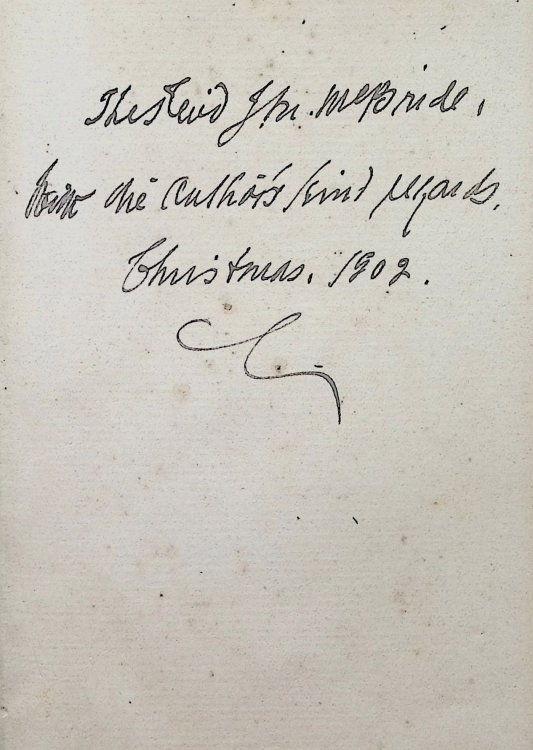 The Revd Jn. McBride,
With the Author's kind regards.
Christmas. 1902.